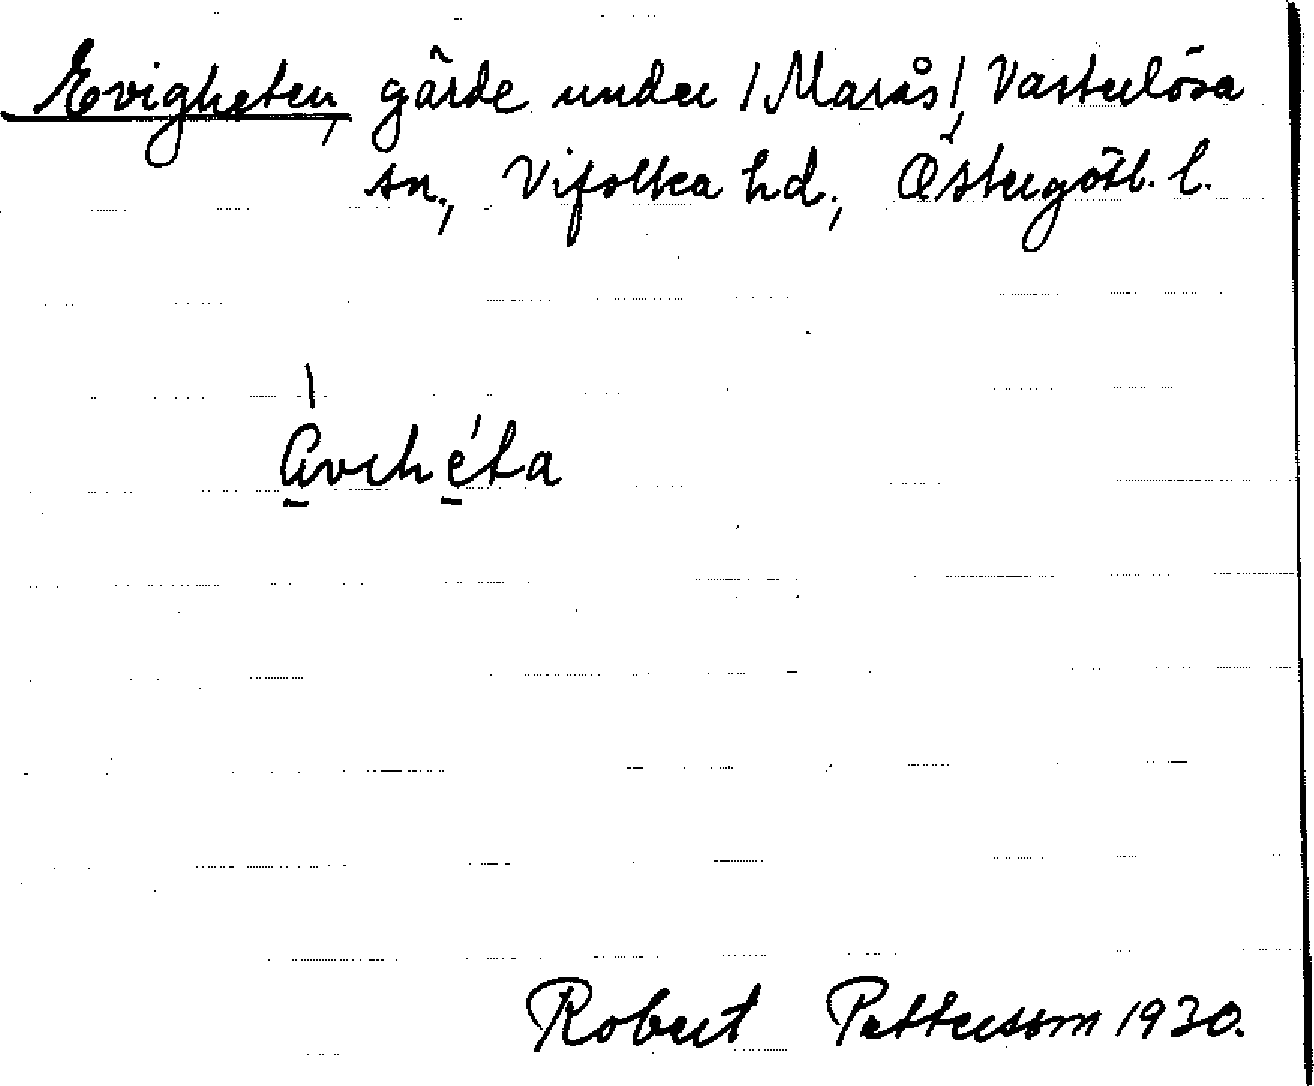 Evigheten, gärde under /Marås/, Västerlösa
sn., Vifolka hd., Östergötl. l.
ávehéta
Robert Pettersson 1930.